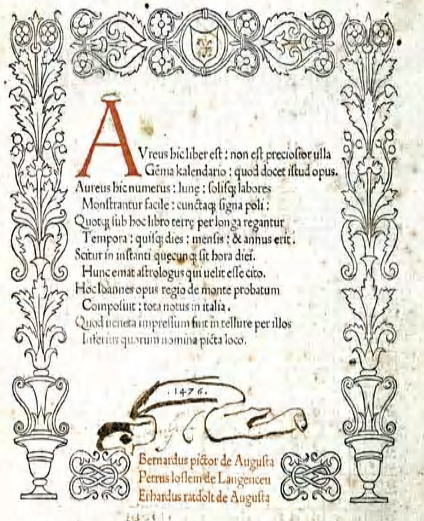 AUreus hic liber est : non est preciosior ulla
Gēma kalendario : quod docet istud opus.
Aureus hic numerus : lune : solisq; labores
Monstrantur facile : cunctaq; signa poli :
Quotq; sub hoc libro terre per longa regantur
Tempora : quisq; dies : mensis : & annus erit .
Scitur in instanti quecunq; sit hora diei.
Hunc emat astrologus qui uelit esse cito.
Hoc Ioannes opus regio de monte probatum
Composuit : tota notus in italia .
Quod ueneta impressum fuit in tellure per illos
Inferius quorum nomina picta loco.
.1476.
Bernardus pictor de Augusta
Petrus loslein de Langencen
Erhardus ratdolt de Augusta